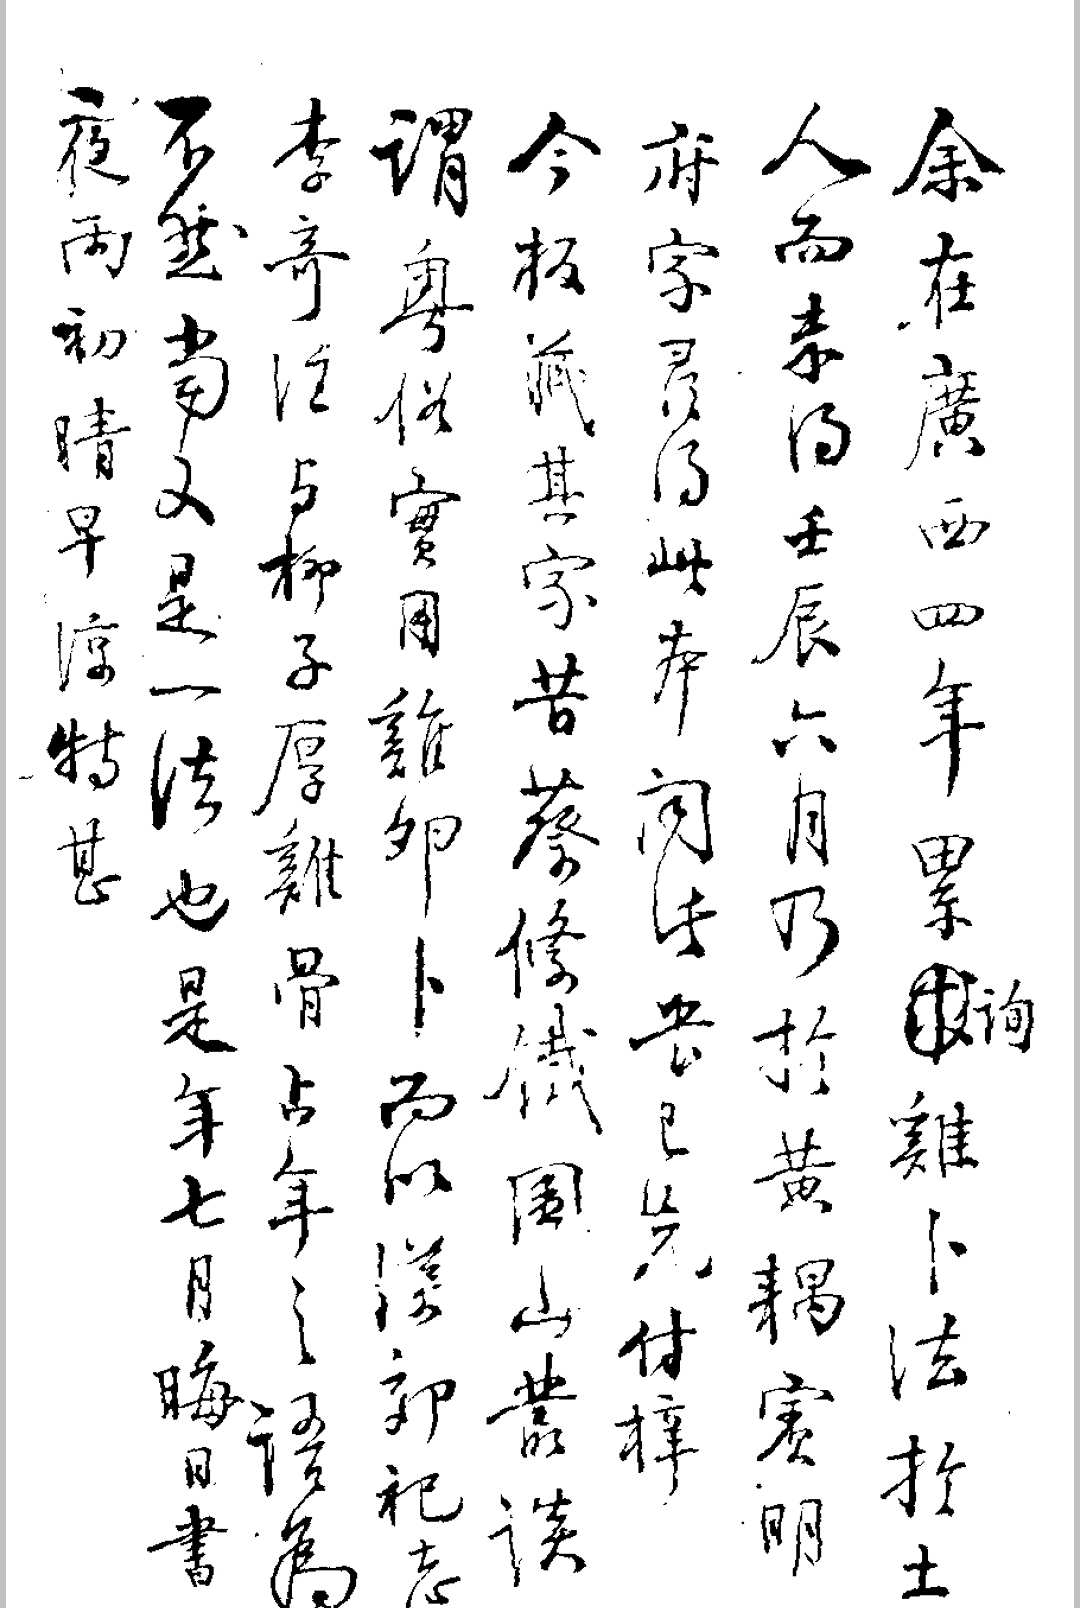 余在廣西四年累詢雞卜法於土
人而未得壬辰六月乃於黃耦賓明
府家君得此本聞法器已先付梓
今板藏其家昔蔡絛鐵圍山叢談
謂粵俗實用雞卵卜而以漢郊祀志
李奇注与柳子厚雞骨占年之語為
不然當又是一法也是年七月晦日書
夜雨初晴早涼特甚